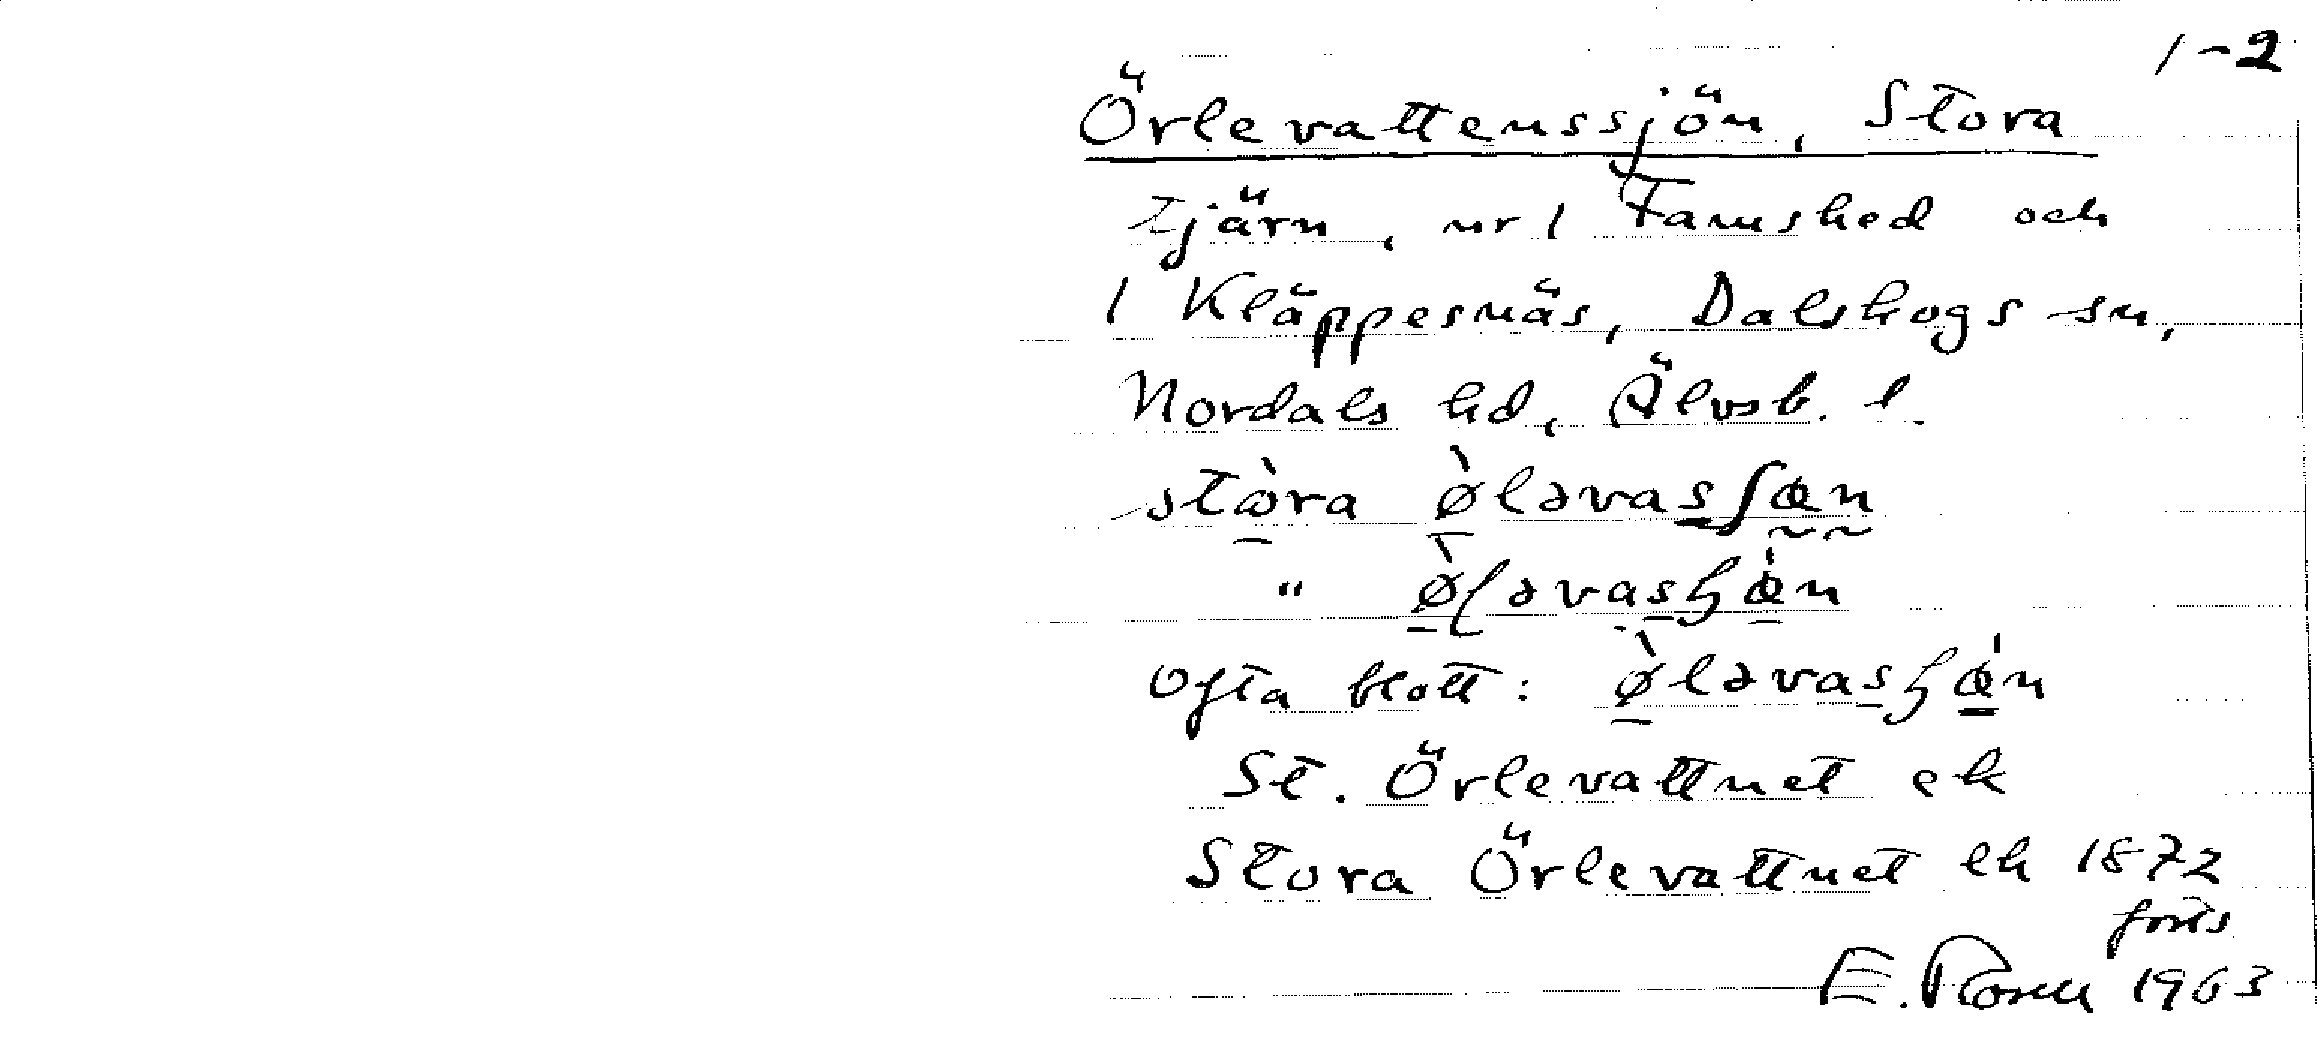 1-2
Örlevattenssjön, Stora
tjärn, nr 1 Famshed och
1 Kläppesnäs, Dalskogs sn,
Nordals hd, Älvsb. l.
stò̠ra ø̠̀ləvas̠ʃœ̰n̰
" ø̠̀ləvas̠ɧœ̠́n
ofta blott: ø̠̀ləvas̠ɧœ̠́n
St. Örlevattnet ek
Stora Örlevattnet ek 1872
forts
E. 1963